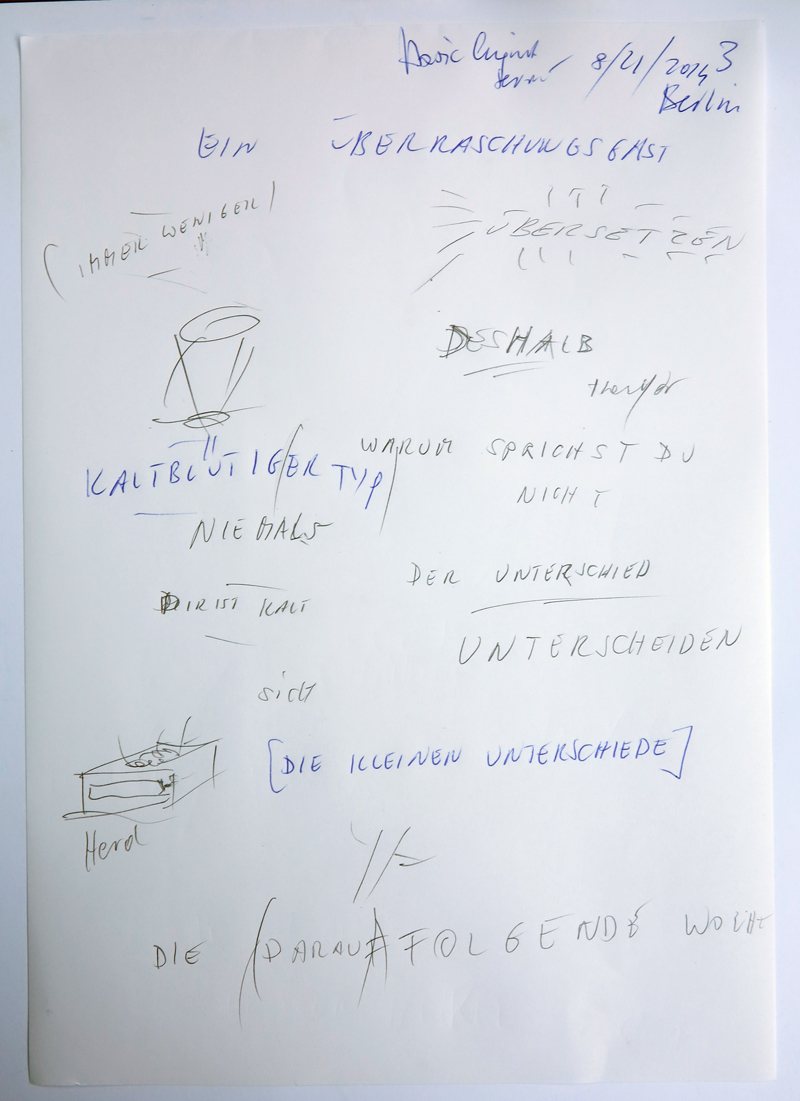 8/21/2014 3
Berlin
EIN ÜBERRASCHUNGSGAST
(IMMER WENIGER)
ÜBERSETZEN
DESHALB
therefor
KALTBLÜTIG/ER TYP/
WARUM SPRICHST DU
NICHT
NIEMALS
DER UNTERSCHIED
DIR IST KALT
UNTERSCHEIDEN
sich
[DIE KLEINEN UNTERSCHIEDE]
Herd
DIE (DARAUF) FOLGENDE WOCHE